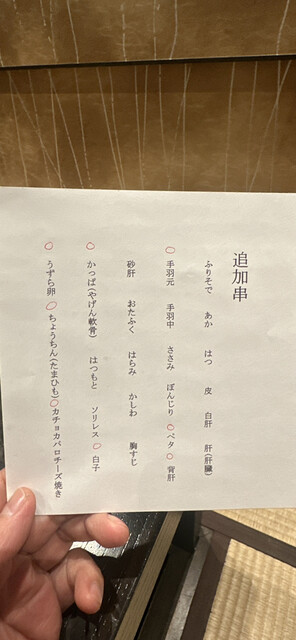 追加串
ふりそで あか はつ 皮 白肝 肝(肝臓)
手羽元 手羽中 ささみ ぼんじり ペタ 背肝
砂肝 おたふく はらみ かしわ 胸すじ
かっぱ(やげん軟骨) はつもと ソリレス 白子
うずら卵 ちょうちん(たまひも) カチョカバロチーズ焼き